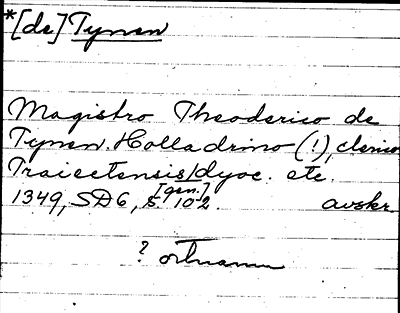 *[de] Tymen
Magistro Theoderico de
Tymen. Holladrino (!), clerico
Traiectensis/dyoc. etc.
[gen.]
1349, SD6, s. 102. avskr.
? ortnamn